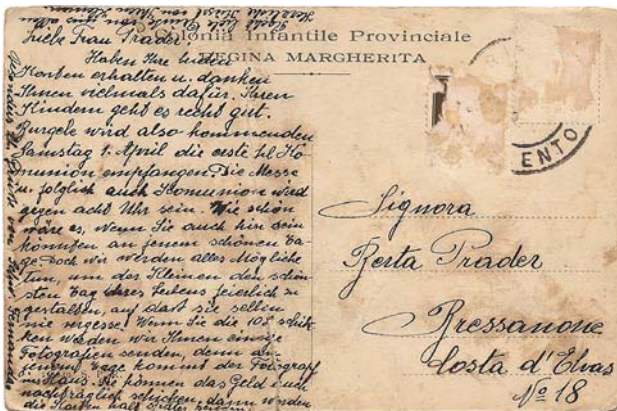 Colonia Infantile Provinciale
REGINA MARGHERITA
ENTO
Liebe Frau Prader!
Haben Ihre beiden
Karten erhalten u. danken
Ihnen vielmals dafür. Ihren
Kindern geht es recht gut.
Burgele wird also kommenden
Samstag 1. April die erste hl. Ko-
munion empfangen. Die Messe
u. folglich auch Komunion wird
gegen acht Uhr sein. Wie schön
wäre es, wenn Sie auch hier sein
könnten an jenem schönen Ta-
ge. Doch wir werden alles Mögliche
tun, um der Kleinen den schön-
sten Tag ihres Lebens feierlich zu
gestalten, auf dass sie selben
nie vergesse! Wenn Sie die 10£ schik-
ken werden wir Ihnen einige
Fotografien senden, denn an
jenem Tage kommt der Fotograf
ins Haus. Sie können das Geld auch
nachträglich schicken, dann werden
die Karten halt später
Signora
Berta Prader
Bressanone
Costa d'Elvas
Nº 18